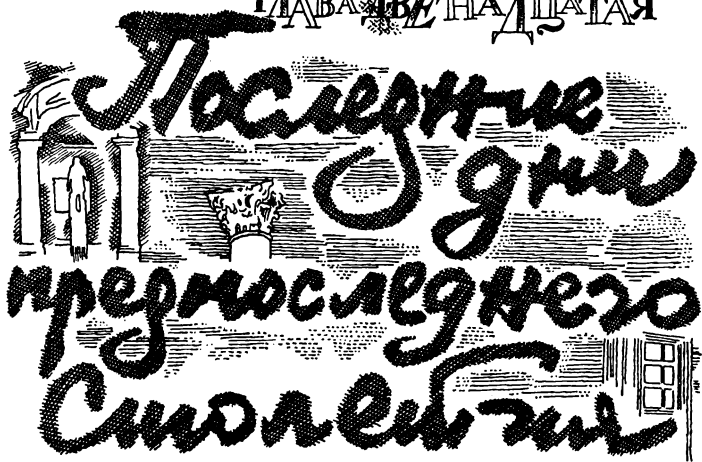 ГЛАВА ДВЕНАДЦАТАЯ
Последние
дни
предпоследнего
Столетия